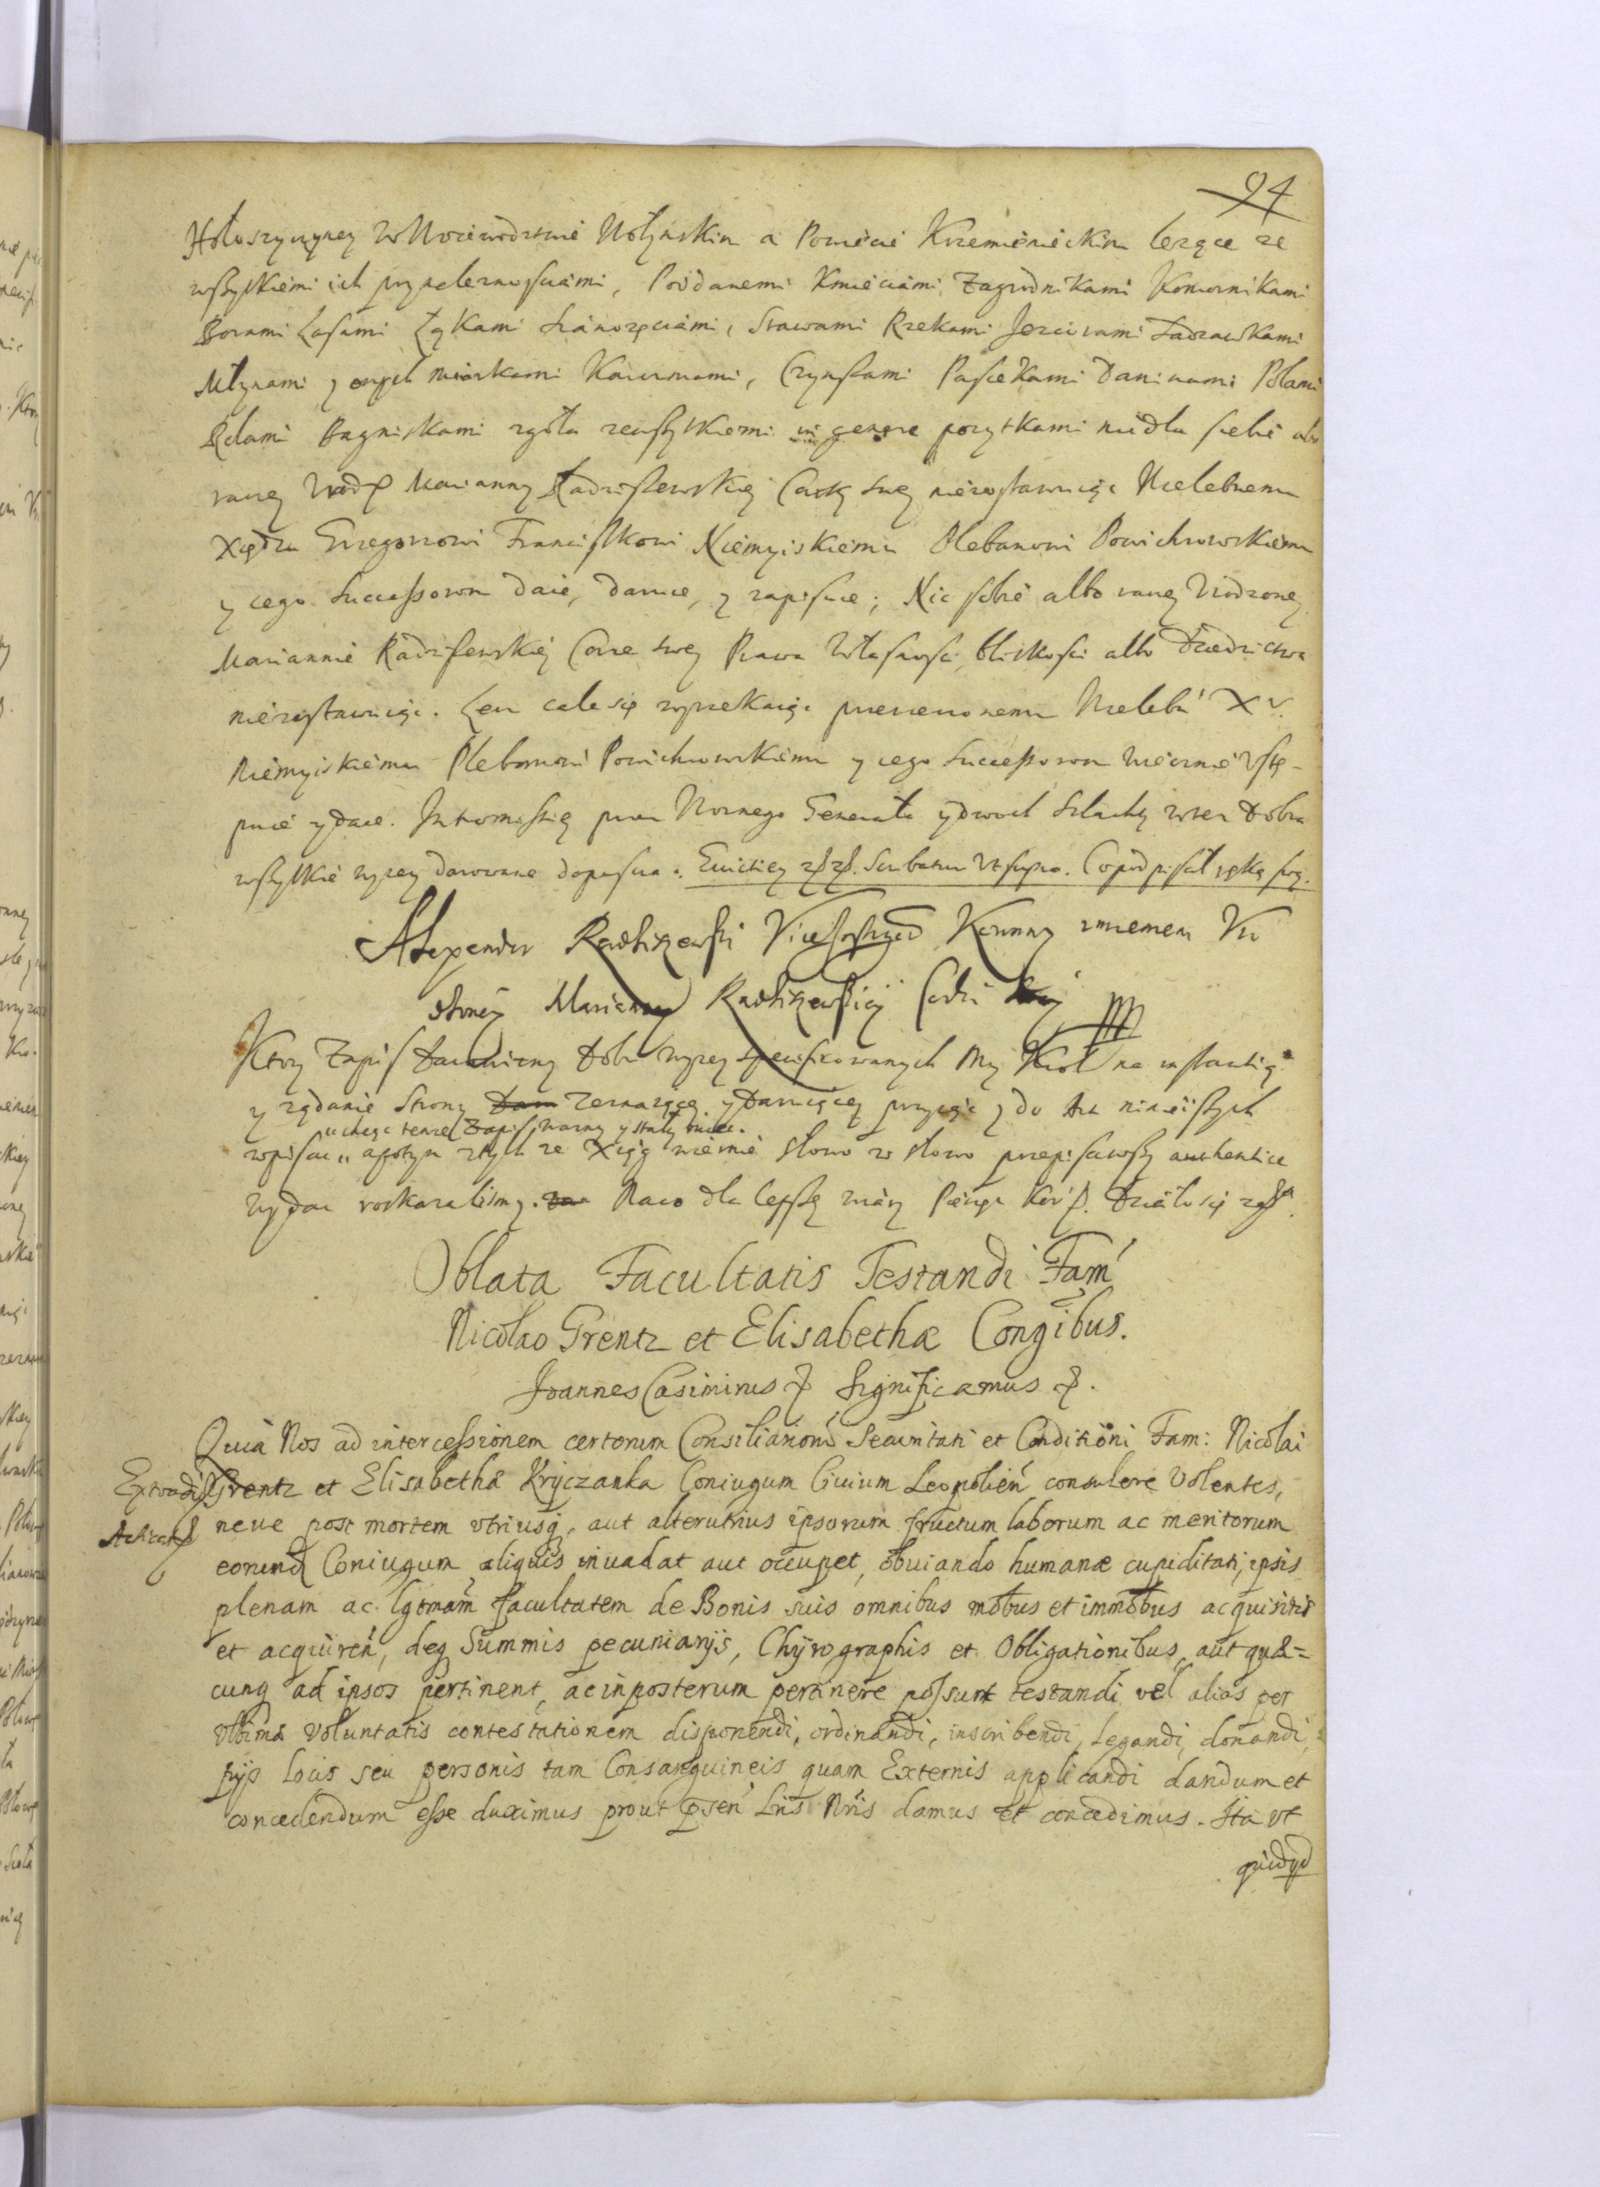 94
Hołoszyczyney w Woiewodztwie Wołynskim a Powiecie Krzemienieckim lezące ze
wszystkiemi ich przynaleznosciami, Poddanemi Kmieciami Zagrodnikami Komornikami
Borami Lasami Łąkami Sianozęciami, Stawami Rzekami Jeziorami Sadzawkami
Młynami y onych miarkami Karczmami, Czynszami Pasiekami Daninami Polami
Rolami Bagniskami zgoła ze wszytkiemi in genere pozytkami nie dla siebie albo
Marianny Radziszewskiey Corki swey niezostawuiąc Wielebnemu
Xiędzu Grzegorzowi Franciszkowi Niemyiskiemu Plebanowi Powichrowskiemu
y iego Successorom daie, daruie, y zapisuie; Nic sobie albo rzeczoney Urodzoney
Mariannie Radziszewskiey Corce swey Prawa Własnosci bliskosci albo Dziedzictwa
niezostawuiąc. Lecz cale się wyrzekaiąc pomienionemu Wieleb: X
Niemyiskiemu Plebanowi Powichrowskiemu y iego Successorom wiecznie Ustę-
puie y daie. Intromissię przez Woznego Generała y dwoch Szlachty w tez Dobra
wszytkie wyzey darowane dopuszcza. Evictiey Scribatur Ut supra. Co podpisał ręką swą.
Alexander Radziszewski Koronny imieniem Uro
dzoney Marianny Radziszewskiey swey
mp
Ktory Zapis Darowizny Dobr wyzey specifikowanych My Krol na instantią
y ządanie Strony Dam Zeznaiącey y Daruiącey przyiąć y do Akt ninieiszych
chcąc tenze Zapis wazny y stały miec.
wpisac a potym z tych ze Xiąg wiernie słowo w słowo przepisawszy authentice
wydac roskazalismy. Na co dla lepszey wiary Pieczęc Kor. Działo się
Oblata Facultatis Testandi Fam
Nicolao Grentz et Elisabethæ Congibus.
Joannes Casimirus Significamus
Quia Nos ad intercessionem certorum Consiliariorũ Securitati et Conditioni Fam: Nicolai
Extradit
Grentz et Elisabethæ Kryczanka Coniugum Ciuium Leopolien consulere Volentes,
neue post mortem vtriusq, aut alterutrius ipsorum fructum laborum ac meritorum
eorund Coniugum aliquis inuadat aut occupet, obuiando humanæ cupiditati, ipsis
plenam ac lgtmam facultatem de Bonis suis omnibus mobus et immobus acquisitis
et acquiren, deq Summis pecuniarijs, Chyrographis et Obligationibus, aut quæ=
cunq ad ipsos pertinent, ac inposterum pertinere possunt testandi vel alias per
vltimæ voluntatis contestationem disponendi, ordinandi, inscribendi, Legandi, donandi,
pijs Locis seu personis tam Consanguineis quam Externis applicandi dandum et
concedendum esse duximus prout psen Lris Nris damus et concedimus. Ita vt
quidqd